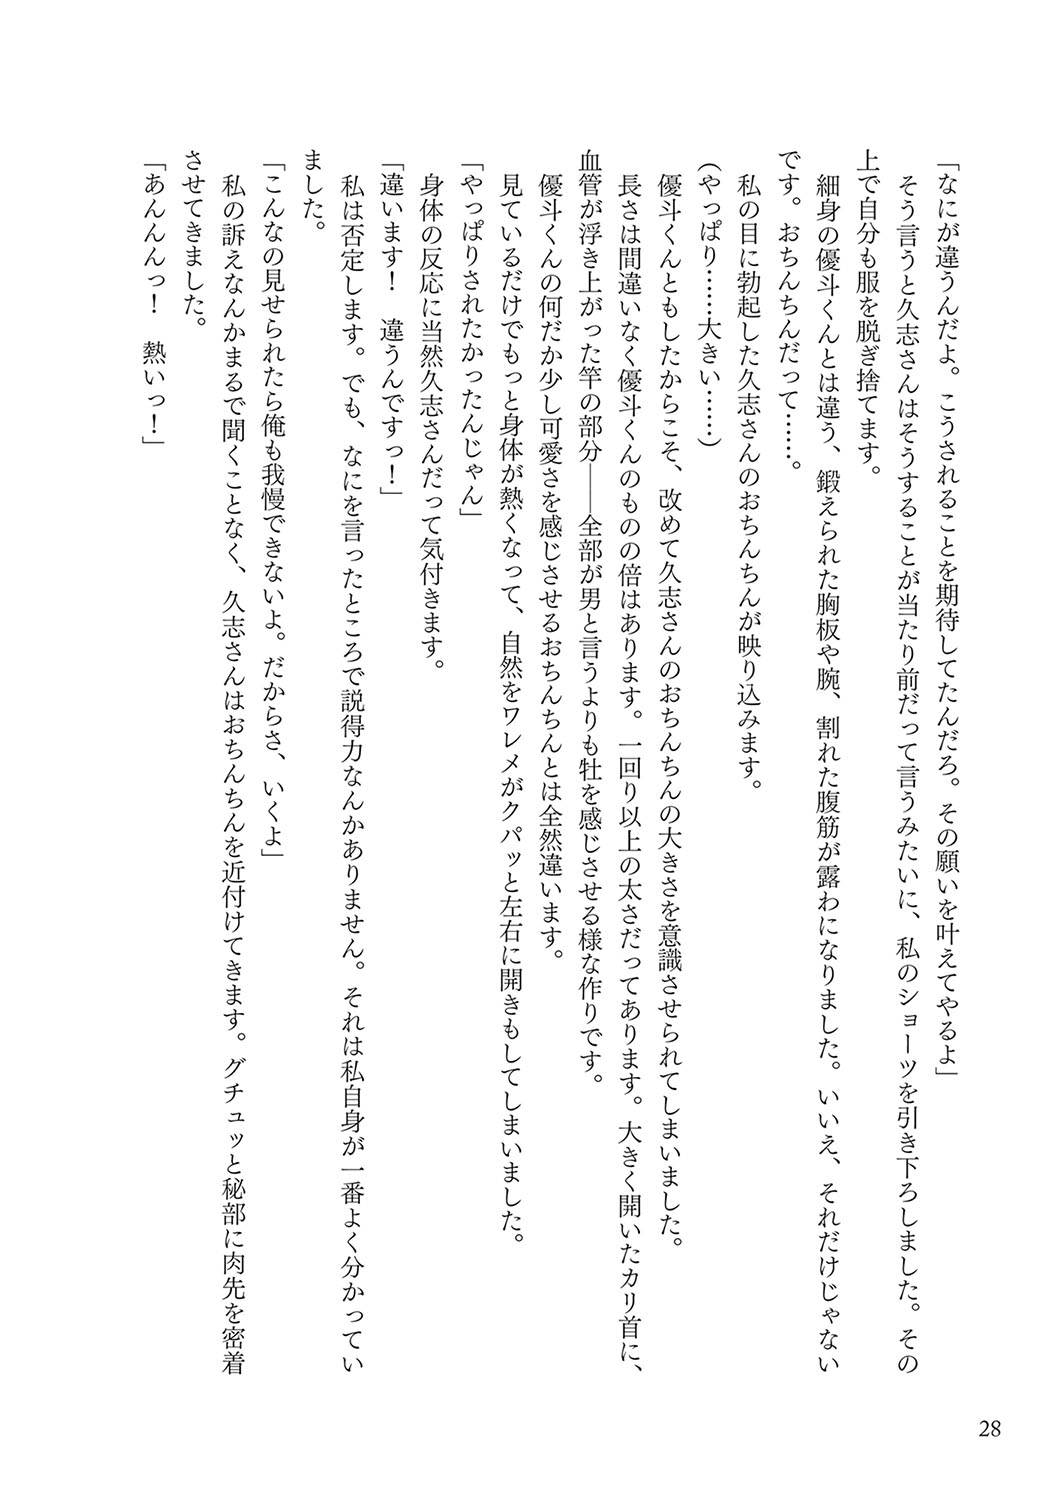 「なにが違うんだよ。こうされることを期待してたんだろ。その願いを叶えてやるよ」
そう言うと久志さんはそうすることが当たり前だって言うみたいに、私のショーツを引き下ろしました。その
上で自分も服を脱ぎ捨てます。
細身の優斗くんとは違う、鍛えられた胸板や腕、割れた腹筋が露わになりました。いいえ、それだけじゃない
です。おちんちんだって……。
私の目に勃起した久志さんのおちんちんが映り込みます。
（やっぱり……大きい……）
優斗くんともしたからこそ、改めて久志さんのおちんちんの大きさを意識させられてしまいました。
長さは間違いなく優斗くんのものの倍はあります。一回り以上の太さだってあります。大きく開いたカリ首に、
血管が浮き上がった竿の部分――全部が男と言うよりも牡を感じさせる様な作りです。
優斗くんの何だか少し可愛さを感じさせるおちんちんとは全然違います。
見ているだけでもっと身体が熱くなって、自然をワレメがクパッと左右に開きもしてしまいました。
「やっぱりされたかったんじゃん」
身体の反応に当然久志さんだって気付きます。
「違います！　違うんですっ！」
私は否定します。でも、なにを言ったところで説得力なんかありません。それは私自身が一番よく分かってい
ました。
「こんなの見せられたら俺も我慢できないよ。だからさ、いくよ」
私の訴えなんかまるで聞くことなく、久志さんはおちんちんを近付けてきます。グチュッと秘部に肉先を密着
させてきました。
「あんんんっ！　熱いっ！」
28